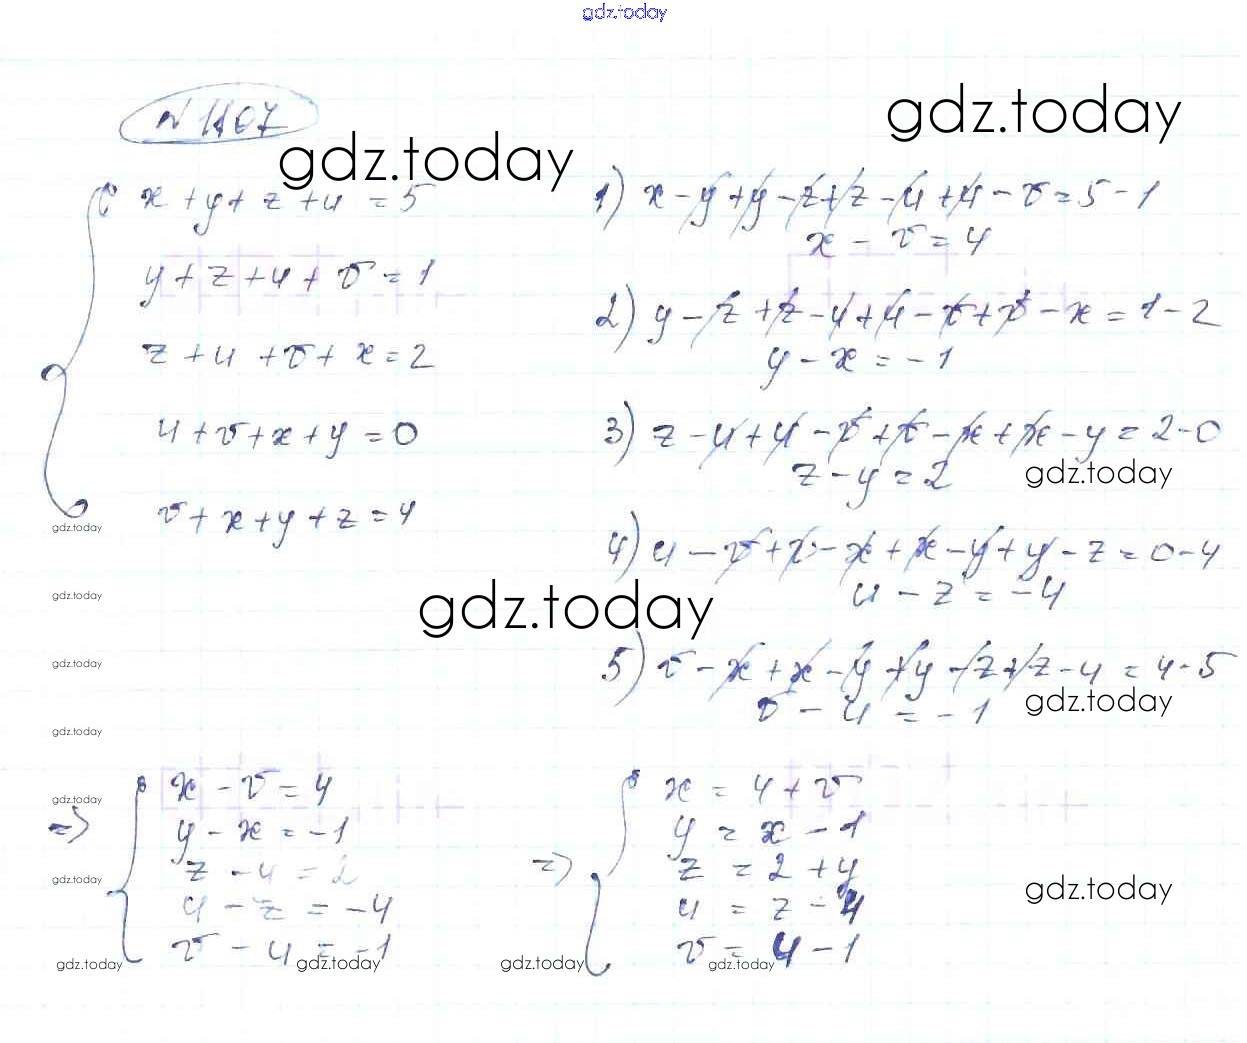 gdz.today
№ 1107
gdz.today
gdz.today
x + y + z + u = 5
y + z + u + v = 1
z + u + v + x = 2
u + v + x + y = 0
v + x + y + z = 4
1) x - y + y - z + z - u + u - v = 5 - 1
x - v = 4
2) y - z + z - u + u - v + v - x = 1 - 2
y - x = -1
3) z - u + u - v + v - x + x - y = 2 - 0
z - y = 2
gdz.today
4) u - v + v - x + x - y + y - z = 0 - 4
u - z = -4
5) v - x + x - y + y - z + z - u = 4 - 5
v - u = -1
gdz.today
gdz.today
gdz.today
gdz.today
gdz.today
gdz.today
gdz.today
gdz.today
=> x - v = 4
y - x = -1
z - y = 2
u - z = -4
v - u = -1
=> x = 4 + v
y = x - 1
z = 2 + y
u = z - 4
v = u - 1
gdz.today
gdz.today
gdz.today
gdz.today
gdz.today